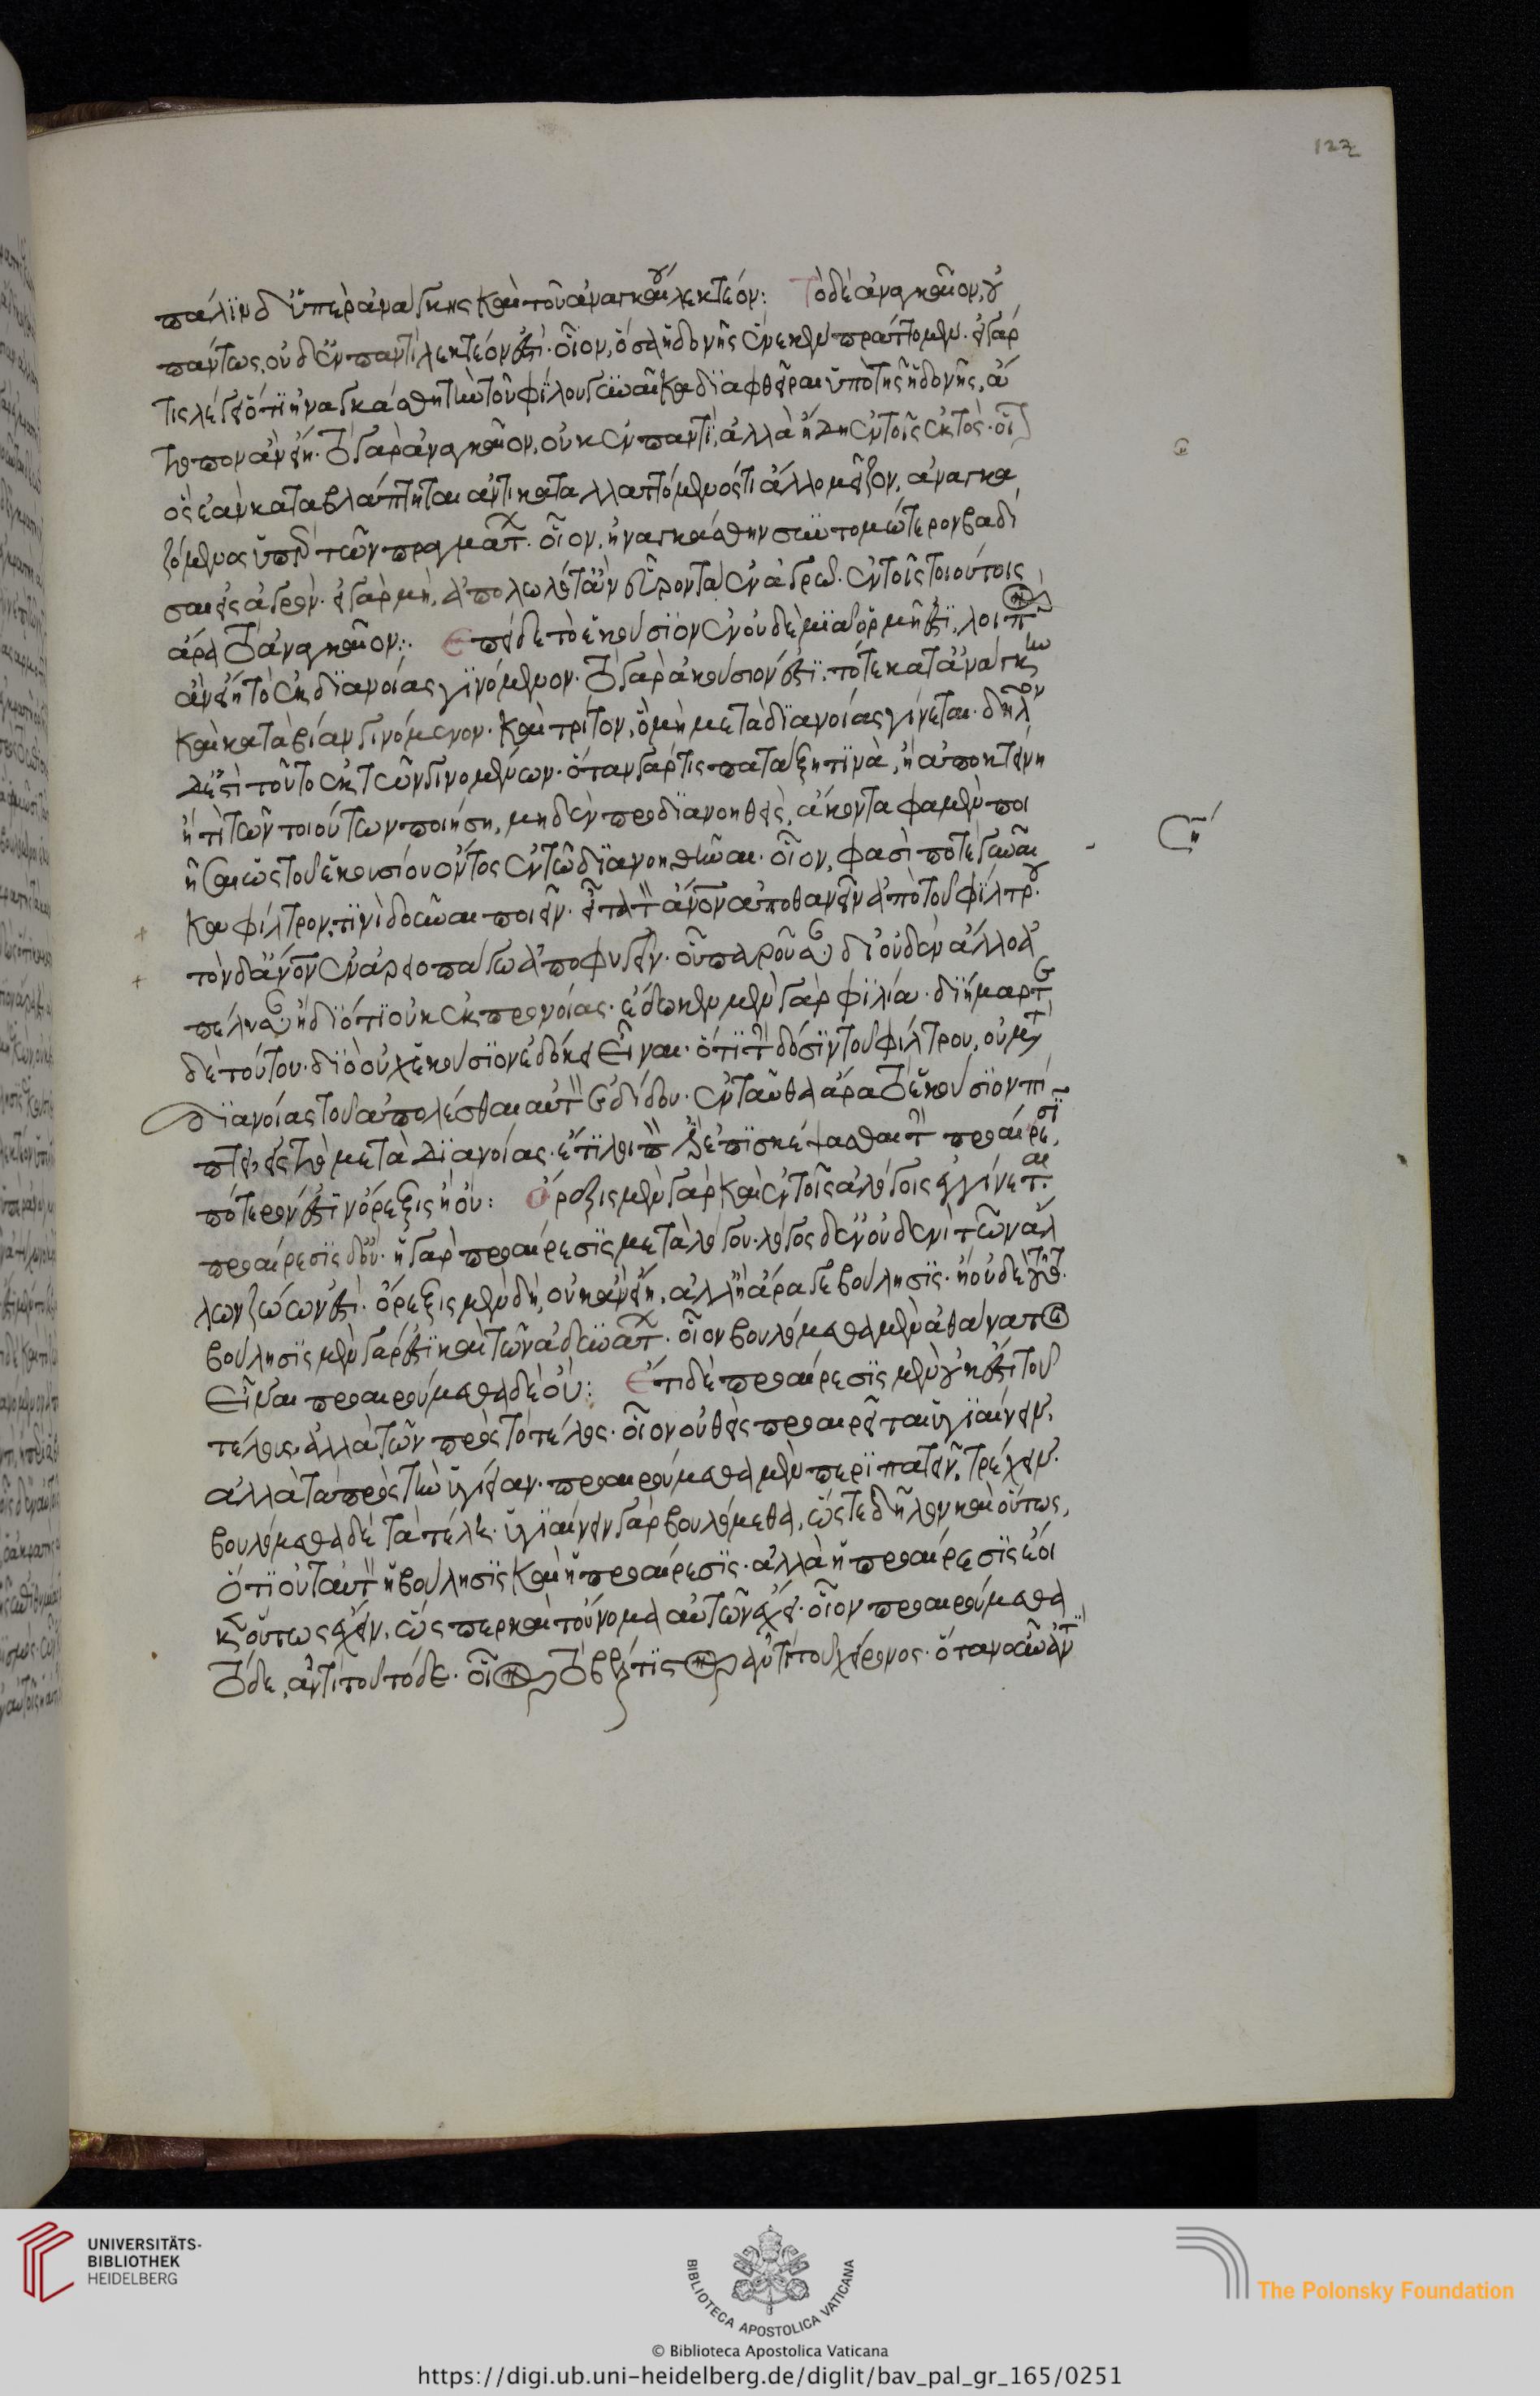 πάλϊν δ' ὑπὲρ ἀνάγκης καὶ τοῦ ἀναγκαίου λεκτέον: Τὸ δὲ ἀναγκαῖον, οὐ
πάντως, οὐδ' ἐν παντὶ λεκτέον ἐστί· οἷον, ὅσα ἡδονῆς ἕνεκεν πράττομεν· εἰ γάρ
τις λέγει ὅτι ἠναγκάσθην τὴν τοῦ φίλου γυναῖκα διαφθεῖραι ὑπὸ τῆς ἡδονῆς, ἄ
τοπον ἂν εἴη· τὸ γὰρ ἀναγκαῖον, οὐκ ἐν παντὶ, ἀλλὰ ἤδη ἐν τοῖς ἐκτός· οἷον
ὃς ἐὰν καταβλάπτηται ἀντικαταλλαττόμενός τι ἄλλο μεῖζον, ἀναγκα
ζόμενος ὑπὸ τῶν πραγμάτων· οἷον, ἠναγκάσθην συντομώτερον βαδί
σαι εἰς ἀγρόν· εἰ γὰρ μὴ, ἀπολωλότ' ἂν εὗρον τὰ ἐν ἀγρῷ· ἐν τοῖς τοιούτοις
ἄρα τὸ ἀναγκαῖον:· Ἐπεὶ δὲ τὸ ἑκούσιον ἐν οὐδεμιᾷ ὁρμῇ ἐστι, λοιπὸν
ἂν εἴη τὸ ἐκ διανοίας γινόμενον· τὸ γὰρ ἀκούσιόν ἐστι, τό τε κατ' ἀνάγκην
καὶ κατὰ βίαν γινόμενον· καὶ τρίτον, ὃ μὴ μετὰ διανοίας γίνεται· δῆλον
δέ ἐστι τοῦτο ἐκ τῶν γινομένων· ὅταν γάρ τις πατάξῃ τινὰ, ἢ ἀποκτείνῃ
ἤ τι τῶν τοιούτων ποιήσῃ, μηδὲν προδιανοηθεὶς, ἄκοντα φαμὲν ποι
ῆσαι ὡς τοῦ ἑκουσίου ὄντος ἐν τῷ διανοηθῆναι· οἷον, φασί ποτε γυναῖ
κα φίλτρον τινὶ δοῦναι πιεῖν· εἶτα τὸν ἄνον ἀποθανεῖν ἀπὸ τοῦ φίλτρου·
τὴν δ' ἄνον ἐν ἀρείῳ πάγῳ ἀποφυγεῖν· οὗ παροῦσαν δι' οὐδὲν ἄλλο ἀ
πέλυσαν ἢ διότι οὐκ ἐκ προνοίας· ἔδωκεν μὲν γὰρ φιλίᾳ· διήμαρτεν
δὲ τούτου· διὸ οὐχ ἑκούσιον ἐδόκει εἶναι· ὅτι τὴν δόσιν τοῦ φίλτρου, οὐ μετὰ
διανοίας τοῦ ἀπολέσθαι αὐτὸν ἐδίδου· ἐνταῦθα ἄρα τὸ ἑκούσιον πί
πτει εἰς τὸ μετὰ διανοίας· ἔτι λοιπὸν δὲ ἐπισκέψασθαι τὴν προαίρεσιν,
πότερόν ἐστιν ὄρεξις ἢ οὔ: Ὄρεξις μὲν γὰρ καὶ ἐν τοῖς ἀλόγοις ἐγγίνεται·
προαίρεσις δ' οὔ· ἡ γὰρ προαίρεσις μετὰ λόγου· λόγος δ' ἐν οὐδενὶ τῶν ἄλ
λων ζώων ἐστί· ὄρεξις μὲν δὴ, οὐκ ἂν εἴη, ἀλλ' ἢ ἄρα γε βούλησις· ἢ οὐδὲ τοῦτο·
βούλησις μὲν γάρ ἐστι καὶ τῶν ἀδυνάτων· οἷον βουλόμεθα μὲν ἀθάνατοι
εἶναι προαιρούμεθα δὲ οὔ: Ἔτι δὲ προαίρεσις μὲν οὐκ ἔστι τοῦ
τέλους· ἀλλὰ τῶν πρὸς τὸ τέλος· οἷον οὐθεὶς προαιρεῖται ὑγιαίνειν,
ἀλλὰ τὰ πρὸς τὴν ὑγίειαν· προαιρούμεθα μὲν περιπατεῖν, τρέχειν·
βουλόμεθα δὲ τὰ τέλη· ὑγιαίνειν γὰρ βουλόμεθα, ὥστε δῆλον καὶ οὕτως,
ὅτι οὐ ταὐτὸν ἡ βούλησις καὶ ἡ προαίρεσις· ἀλλὰ ἡ προαίρεσις ἔοι
κεν οὕτως ἔχειν, ὥσπερ καὶ τοὔνομα αὐτῶν ἔχει· οἷον προαιρούμεθα
τόδε, ἀντὶ τοῦ τόδε· οἷον τὸ βέλτιον ἀντὶ τοῦ χείρονος· ὅταν οὖν ἀντ
122
UNIVERSITÄTS-
BIBLIOTHEK
HEIDELBERG
BIBLIOTECA APOSTOLICA VATICANA
The Polonsky Foundation
© Biblioteca Apostolica Vaticana
https://digi.ub.uni-heidelberg.de/diglit/bav_pal_gr_165/0251